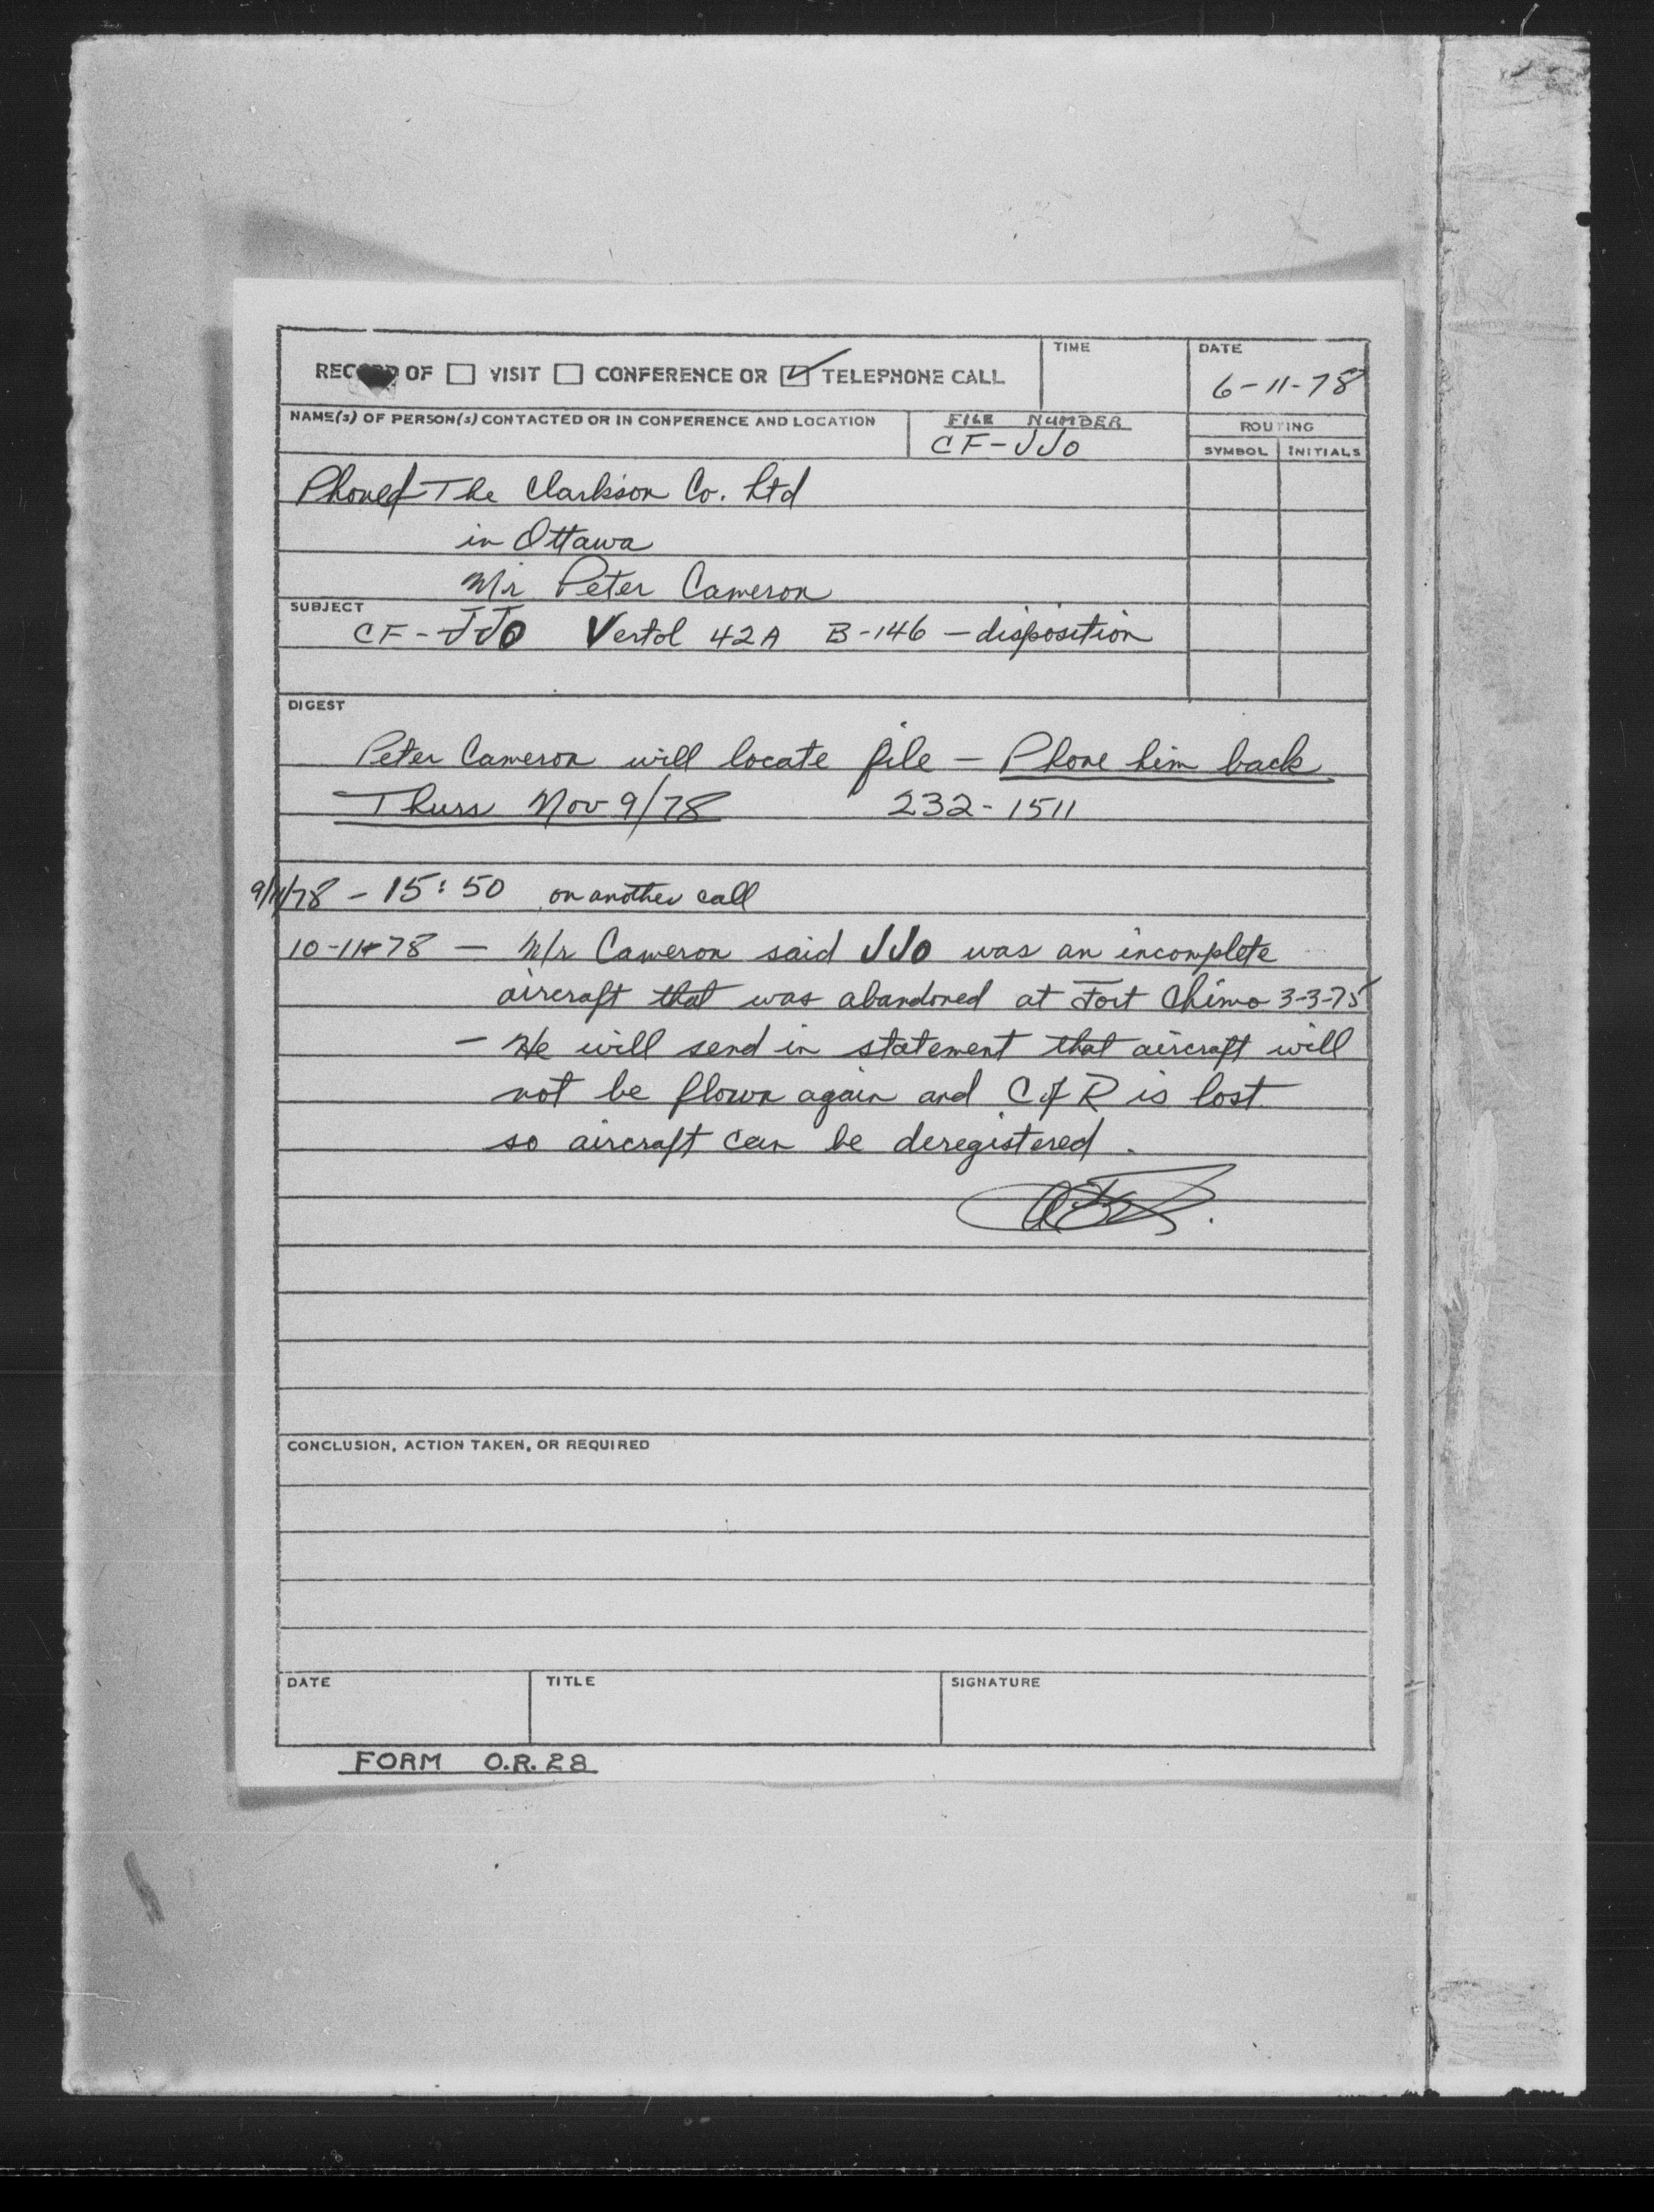 RECORD OF ☐ VISIT ☐ CONFERENCE OR ☑ TELEPHONE CALL
TIME
DATE
6-11-78
NAME(S) OF PERSON(S) CONTACTED OR IN CONFERENCE AND LOCATION
FILE NUMBER
CF-JJO
ROUTING
SYMBOL INITIALS
Phoned The Clarkson Co. Ltd
in Ottawa
Mr Peter Cameron
SUBJECT
CF-JJO Vertol 42A B-146 - disposition
DIGEST
Peter Cameron will locate file - Phone him back
Thurs Nov 9/78 232-1511
9/11/78 - 15:50 on another call
10-11-78 - Mr Cameron said JJO was an incomplete
aircraft that was abandoned at Fort Chimo 3-3-75
- He will send in statement that aircraft will
not be flown again and C of R is lost
so aircraft can be deregistered.
CONCLUSION, ACTION TAKEN, OR REQUIRED
DATE
TITLE
SIGNATURE
FORM O.R. 28